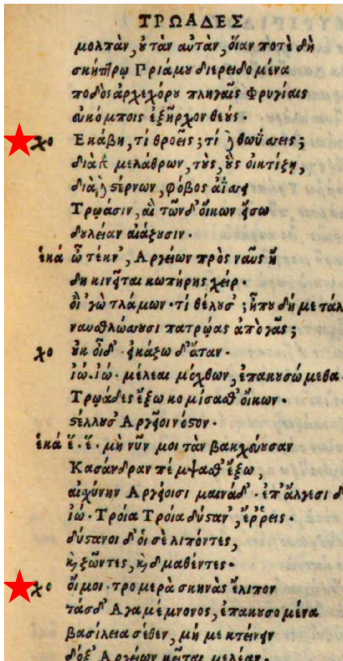 ΤΡΩΑΔΕΣ
μολπὰν, οὐ τὰν αὐτὰν, οἵαν ποτὲ δὴ
σκήπτρῳ Πριάμου διερειδομένα
ποδὸς ἀρχεχόρου πληγαῖς φρυγίαις
εὐκόμποις ἐξῆρχον θεούς.
χο Ἑκάβη, τί θροεῖς; τί δὲ θωΰσσεις;
διὰ γὰρ μελάθρων, τοὺς, οὓς οἰκτίζῃ,
διὰ δὲ στέρνων, φόβος ἀΐσσει
Τρῳάσιν, αἳ τῶνδ' οἴκων ἔσω
δουλείαν αἰάζουσιν.
ἑκά ὦ τέκν', Ἀργείων πρὸς ναῦς ἤ
δη κινεῖται κωπήρης χείρ.
οἲ 'γὼ τλάμων. τί θέλουσ'; ἦ που δή με τάλ
ναυσθλώσουσι πατρῴας ἀπὸ γᾶς;
χο οὐκ οἶδ'. εἰκάζω δ' ἄταν.
ἰώ. ἰώ. μέλεαι μόχθων, ἐπακουσόμεθα.
Τρῳάδες ἔξω κομίσασθ' οἴκων.
στέλλουσ' Ἀργεῖοι νόστον.
ἑκά ἒ. ἒ. μὴ νῦν μοι τὰν βακχεύουσαν
Κασάνδραν πέμψασθ' ἔξω,
αἰσχύνην Ἀργείοισι μαινάδ'. ἐπ' ἄλγεσι δ
ἰώ. Τροία Τροία δύσταν', ἔρρεις.
δύστανοι δ' οἵ σε λιπόντες,
καὶ ζῶντες, καὶ δμαθέντες.
χο οἴμοι. τρομερὰ σκηνὰς ἔλιπον
τάσδ' Ἀγαμέμνονος, ἐπακουσομένα
βασίλεια σέθεν, μή με κτείνειν
δόξ' Ἀργείων κεῖται μελέαν.